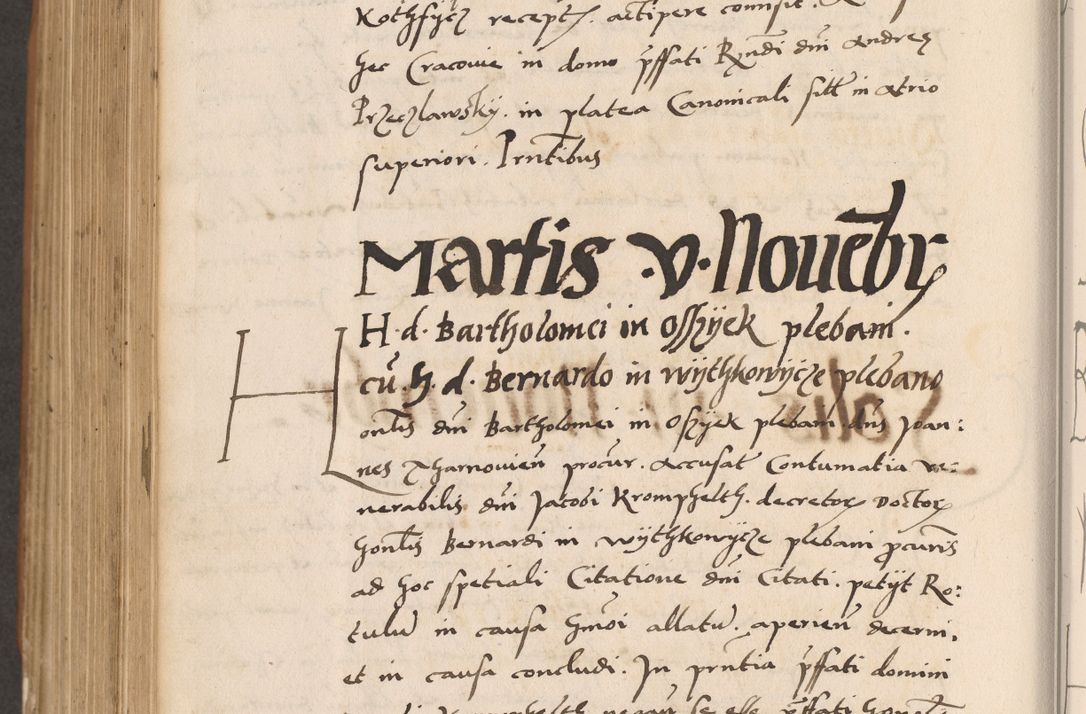 Kothsycz recept. actipere comisit. &
hec Cracovie in domo pffati Rndi dni Andreę
Przeczlawsky. in platea Canonicali sitt in atrio
superiori. Prntibus
Martis .v. Novebr
H. d. Bartholomei in Osszyek plebani.
cu. h. d. Bernardo in wythkowycze plebano
Honlis dni Bartholomei in Oszyek plebani. dns Joan:
nes Tharnovien procur. Accusat Contumatia ve:
nerabilis dni Jacobi Kromphelth. decretor Doctor
honlis Bernardi in wythkowycze plebani pcuris
ad hoc spetiali Citatione dni Citati. petyt Ro:
tulu in causa hmoi allatu. aperien decerni.
et in causa concludi. In prntia pffati domini
Kromphelth negan se esse pffati